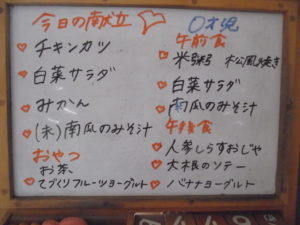 今日の献立
チキンカツ
白菜サラダ
みかん
(未)南瓜のみそ汁
おやつ
お茶、
てづくりフルーツヨーグルト
0才児
午前食
米粥 松風焼き
白菜サラダ
南瓜のみそ汁
午後食
人参しらすおじや
大根のソテー
バナナヨーグルト